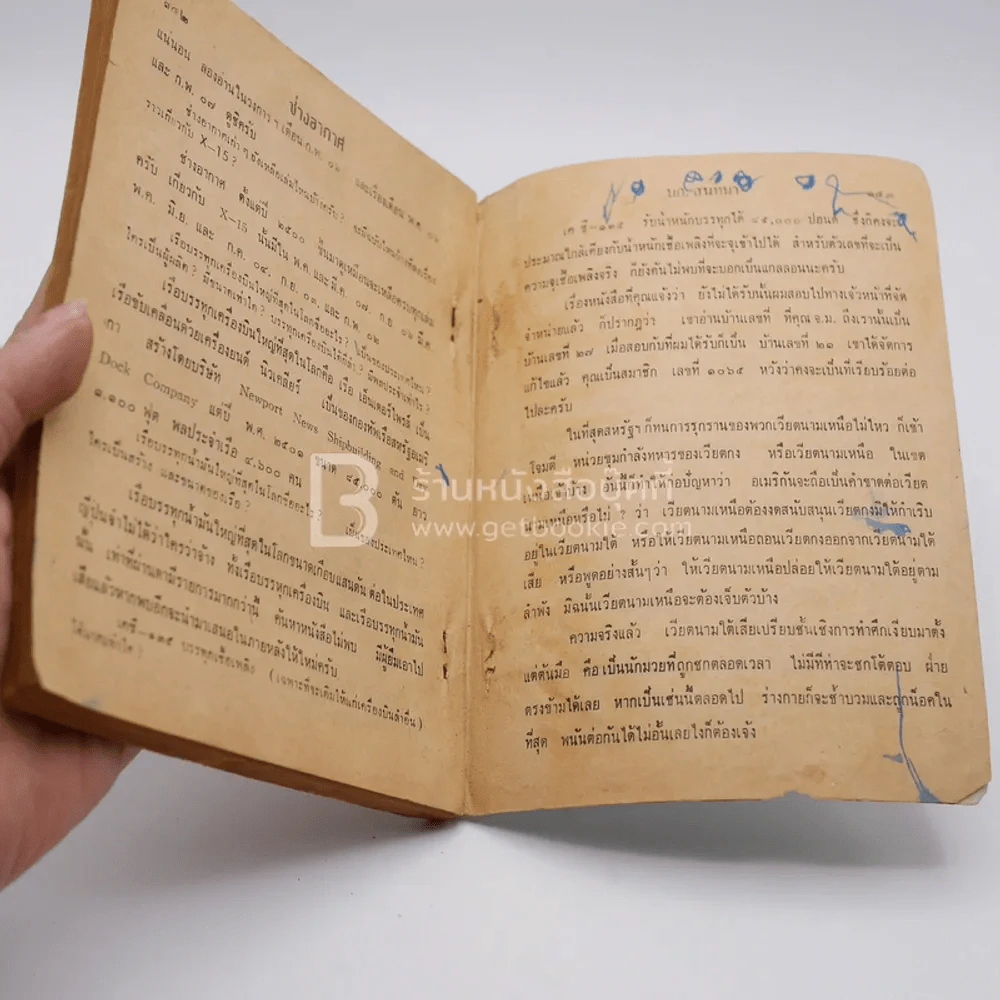 ๑๔๒
แน่นอน ลองอ่านในวงการ ฯ เดือน ก.ค. ๐๖
และ ก.พ. ๐๗ ดูซิครับ
ช่างอากาศ
ราวเกี่ยวกับ X-15 ?
ช่างอากาศ ตั้งแต่ปี ๒๕๐๐ ขึ้นมาดูเหมือนจะเหลือครบทุกเดือน
ครับ เกี่ยวกับ X-15 นั้นมีใน พ.ค. และ มี.ค. ๐๗ ก.ย ๐๖ มี.ค
พ.ค. มิ.ย. และ ก.ค. ๐๔, ก.ย. ๐๓, และ ก.พ. ๐๒
เรือบรรทุกเครื่องบินใหญ่ที่สุดในโลกชื่ออะไร ? เป็นของประเทศไหน ?
ใครเป็นผู้ผลิต ? มีขนาดเท่าใด ? บรรทุกเครื่องบินได้กี่ลำ ? มีพลประจำเท่าไร ?
เรือบรรทุกเครื่องบินใหญ่ที่สุดในโลกคือ เรือ เอ็นเตอร์ไพรส์ เป็น
เรือขับเคลื่อนด้วยเครื่องยนต์ นิวเคลียร์ เป็นของกองทัพเรือสหรัฐอเมริ
กา สร้างโดยบริษัท Newport News Shipbuilding and
Dock Company แต่ปี พ.ศ. ๒๕๐๑ ขนาด ๘๕,๐๐๐ ตัน ยาว
๑.๑๐๐ ฟุต พลประจำเรือ ๔,๖๐๐ คน
เรือบรรทุกน้ำมันใหญ่ที่สุดในโลกชื่ออะไร ? เป็นของประเทศไหน ?
ใครเป็นสร้าง และขนาดของเรือ ?
เรือบรรทุกน้ำมันใหญ่ที่สุดในโลกขนาดเกือบแสนตัน ต่อในประเทศ
ญี่ปุ่นจำไม่ได้ว่าใครว่าจ้าง ทั้งเรือบรรทุกเครื่องบิน และเรือบรรทุกน้ำมัน
นั้น เท่าที่ผ่านตามีรายการมากกว่านี้ ค้นหาหนังสือไม่พบ มีผู้ยืมเอาไป
เสียแล้วหากพบอีกจะนำมาเสนอในภายหลังให้ใหม่ครับ
เคซี—๑๓๕ บรรทุกเชื้อเพลิง (เฉพาะที่จะเติมให้แก่เครื่องบินลำอื่น)
ได้มากเท่าใด ?
บก. สนทนา
๑๔๓
เค ซี—๑๓๕ รับน้ำหนักบรรทุกได้ ๔๕,๐๐๐ ปอนด์ ซึ่งก็คงจะ
ประมาณใกล้เคียงกับน้ำหนักเชื้อเพลิงที่จะจุเข้าไปได้ สำหรับตัวเลขที่จะเป็น
ความจุเชื้อเพลิงจริง ก็ยังค้นไม่พบที่จะบอกเป็นแกลลอนนะครับ
เรื่องหนังสือที่คุณแจ้งว่า ยังไม่ได้รับนั้นผมสอบไปทางเจ้าหน้าที่จัด
จำหน่ายแล้ว ก็ปรากฏว่า เขาอ่านบ้านเลขที่ ที่คุณ จ.ม. ถึงเรานั้นเป็น
บ้านเลขที่ ๒๗ เมื่อสอบกับที่ผมได้รับก็เป็น บ้านเลขที่ ๒๑ เขาได้จัดการ
แก้ไขแล้ว คุณเป็นสมาชิก เลขที่ ๑๐๖๕ หวังว่าคงจะเป็นที่เรียบร้อยต่อ
ไปละครับ
ในที่สุดสหรัฐฯ ก็ทนการรุกรานของพวกเวียตนามเหนือไม่ไหว ก็เข้า
โจมตี หน่วยชุมกำลังทหารของเวียตกง หรือเวียตนามเหนือ ในเขต
เหนือเข้าบ้าง อันนี้ก็ทำให้เกิดปัญหาว่า อเมริกันจะถือเป็นคำขาดต่อเวียต
นามเหนือหรือไม่ ๆ ว่า เวียตนามเหนือต้องงดสนับสนุนเวียตกงมิให้กำเริบ
อยู่ในเวียตนามใต้ หรือให้เวียตนามเหนือถอนเวียตกงออกจากเวียตนามใต้
เสีย หรือพูดอย่างสั้นๆ ว่า ให้เวียตนามเหนือปล่อยให้เวียตนามใต้อยู่ตาม
ลำพัง มิฉนั้นเวียตนามเหนือจะต้องเจ็บตัวบ้าง
ความจริงแล้ว เวียตนามใต้เสียเปรียบชั้นเชิงการทำศึกเงียบมาตั้ง
แต่ต้นมือ คือ เป็นนักมวยที่ถูกชกตลอดเวลา ไม่มีที่ท่าจะชกโต้ตอบ ฝ่าย
ตรงข้ามได้เลย หากเป็นเช่นนี้ตลอดไป ร่างกายก็จะช้ำบวมและถูกน็อคใน
ที่สุด พนันต่อกันได้ไม่อั้นเลยไงก็ต้องเจ้ง
ร้านหนังสือบุ๊คกี้
www.getbookie.com